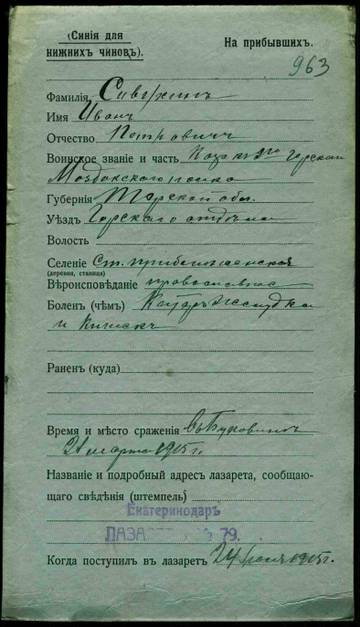 (Синія для
нижнихъ чиновъ).
На прибывшихъ.
963
Фамилія Сиверкинъ
Имя Иванъ
Отчество Петровичъ
Воинское званіе и часть Казакъ
Моздокского полка
Губернія Терской обл.
Уѣздъ отдѣла
Волость
Селеніе Ст. Приближенской
(деревня, станица)
Вѣроисповѣданіе православное
Боленъ (чѣмъ) Катарръ желудка
и кишекъ
Раненъ (куда)
Время и мѣсто сраженія Въ Буковинѣ
21 марта 1915 г.
Названіе и подробный адресъ лазарета, сообщаю-
щаго свѣдѣнія (штемпель)
Екатеринодар
ЛАЗАР 79.
Когда поступилъ въ лазаретъ 24 1915 г.